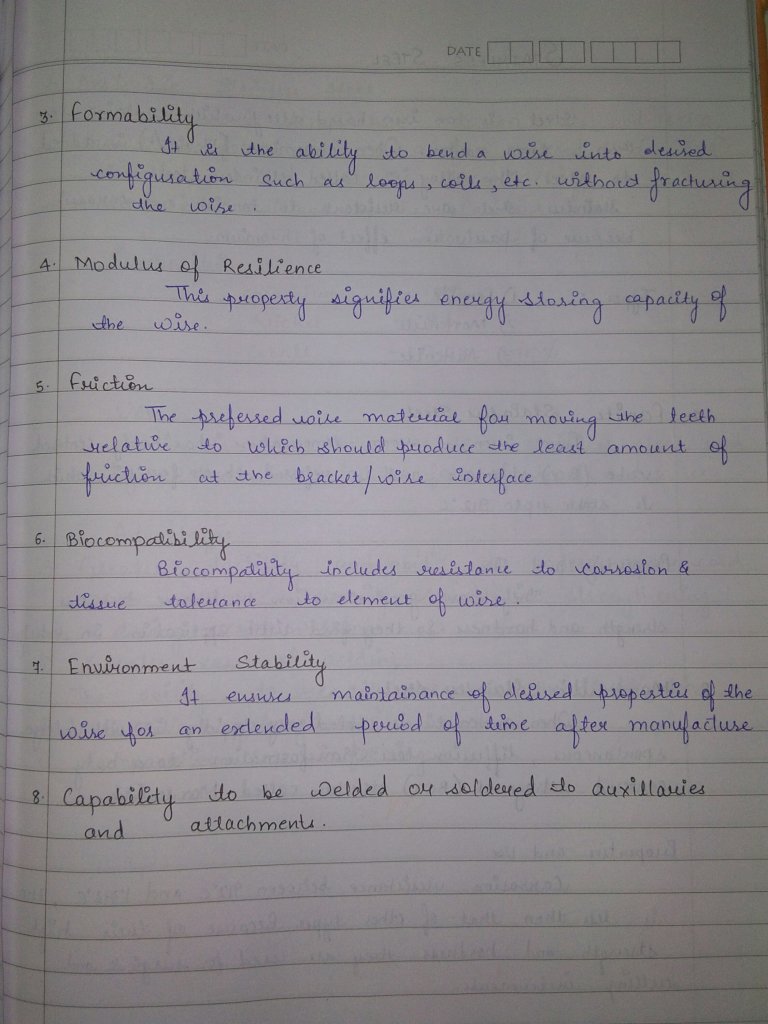 DATE
3. Formability
It is the ability to bend a wire into desired
configuration such as loops, coils, etc. without fracturing
the wire.
4. Modulus of Resilience
This property signifies energy storing capacity of
the wire.
5. Friction
The preferred wire material for moving the teeth
relative to which should produce the least amount of
friction at the bracket/wire interface
6. Biocompatibility
Biocompatility includes resistance to corrosion &
tissue tolerance to element of wire.
7. Environment Stability
It ensures maintainance of desired properties of the
wire for an extended period of time after manufacture
8. Capability to be welded or soldered to auxillaries
and attachments.